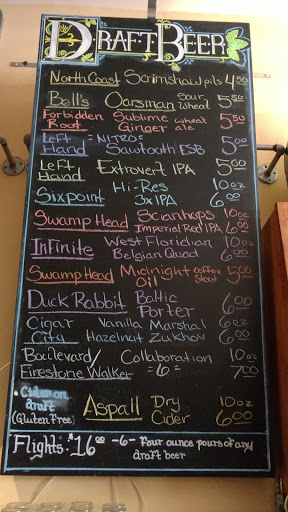 Draft Beer
North Coast Scrimshaw pils 4.50
Bell's Oarsman Sour wheat 5.50
Forbidden Root Sublime Ginger wheat ale 5.50
Left Hand =NITRO= Sawtooth ESB 5.00
Left Hand Extrovert IPA 5.00
Sixpoint Hi-Res 3x IPA 10oz 6.00
Swamp Head Scianhops Imperial Red IPA 10oz 6.00
Infinite West Floridian Belgian Quad 10oz 6.00
Swamp Head Midnight Oil coffee stout 5.00
Duck Rabbit Baltic Porter 6.00
Cigar City Vanilla Marshal Hazelnut Zukhov 6oz 6.00
Boulevard/ Firestone Walker Collaboration =6= 10oz 7.00
• Cider on draft (Gluten Free) Aspall Dry Cider 10oz 6.00
Flights: $16.00 -6- Four ounce pours of any draft beer